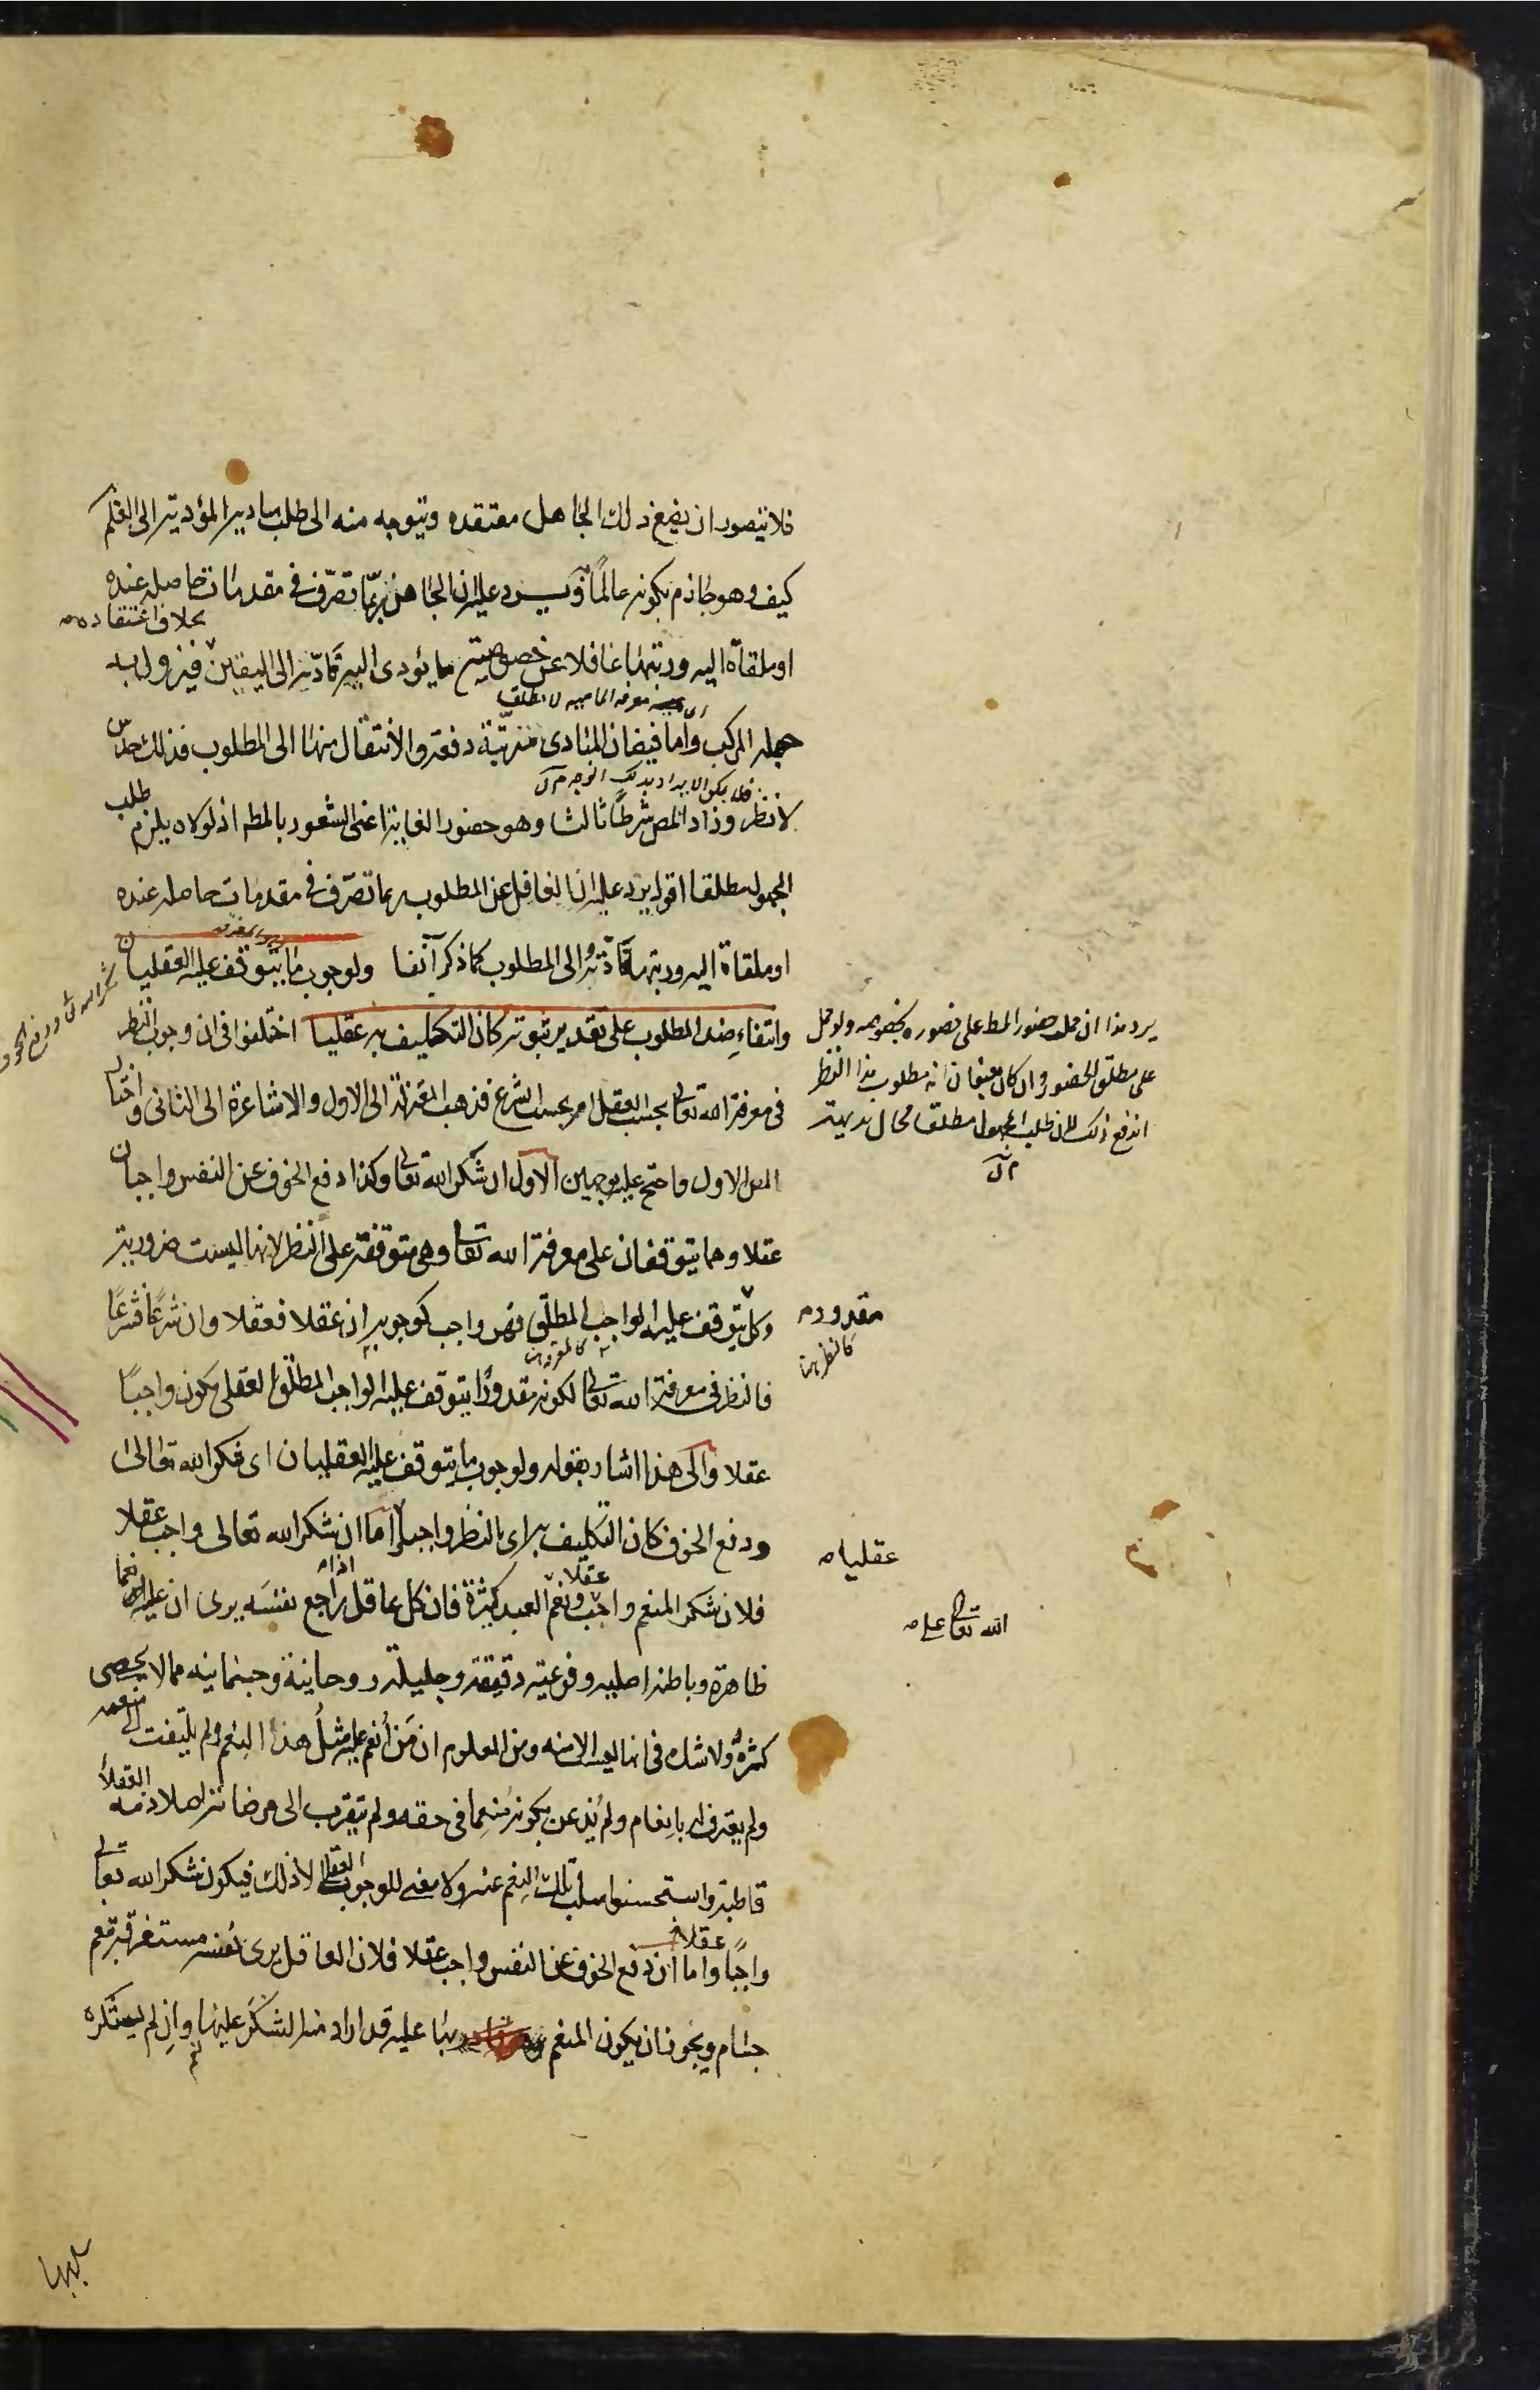 فلا يتصور ان يضع ذلك الجاهل معتقده ويتوجه منه الى طلب مباديه المؤدية الى العلم
كيف وهو جازم بكونه عالما ويرد عليه ان الجاهل ربما تصرّف في مقدمات حاصله عنده
بخلاف اعتقاده
او ملقاة اليه ورتبها غافلا عن خصوصية ما يؤدى اليه فادته الى اليقين فيزول به
جهله المركب واما فيضان المبادى مترتبة دفعة والانتقال منها الى المطلوب فذلك حدس
فلا يمكن الايراد بذلك الوجه
لا نظر وزاد المص شرطًا ثالثا وهو حضور الغاية اعنى الشعور بالمط اذ لولاه يلزم طلب
المجهول مطلقا اقول يرد عليه ان الغافل عن المطلوب ربما تصرّف في مقدمات حاصله عنده
او ملقاة اليه ورتبها فادّته الى المطلوب كما ذكر آنفا ولوجوب ما يتوقف عليه العقليان
وانتفاء ضد المطلوب على تقدير ثبوته كان التكليف به عقليا اختلفوا في ان وجوب النظر
في معرفة الله تعالى بحسب العقل ام بحسب الشرع فذهب المعتزلة الى الاول والاشاعرة الى الثانى واختار
المص الاول واحتج عليه بوجهين الاول ان شكر الله تعالى وكذا دفع الخوف عن النفس واجبان
عقلا وهما يتوقفان على معرفة الله تعالى وهى متوقفة على النظر لانها ليست ضرورية
وكل يتوقف عليه الواجب المطلق فهو واجب كوجوبه ان عقلا فعقلا وان شرعًا فشرعًا
فالنظر في معرفة الله تعالى لكونه مقدورًا يتوقف عليه الواجب المطلق العقلى يكون واجبًا
عقلا والى هذا اشار بقوله ولوجوب ما يتوقف عليه العقليان اى شكر الله تعالى
ودفع الخوف كان التكليف به اى بالنظر واجبا اما ان شكر الله تعالى واجب عقلا
فلان شكر المنعم واجب عقلا ونعم العبد كثيرة فان كل عاقل اذا راجع نفسه يرى ان عليه نعما
ظاهرة وباطنه اصليه وفرعيته دقيقة وجليلة روحانية وجسمانيه مما لا يحصى
كثرة ولا شك في انها ليست الا منه ومن المعلوم ان من أنعم عليه مثل هذا النعم ولم يلتفت الى منعمه
ولم يعترف له بانعام ولم يذعن بكونه منعما في حقه ولم يتقرب الى مرضاته اصلا ذمه العقلاء
قاطبة واستحسنوا سلب تلك النعم عنه ولا معنى للوجوب العقلى الا ذلك فيكون شكر الله تعالى
واجبًا عقلا واما ان دفع الخوف عن النفس واجب عقلا فلان العاقل يرى نفسه مستغرقة بنعم
جسام ويجوز ان يكون المنعم بها عليه قد اراد منه الشكر عليها وان لم يشكره
يرد هذا ان حمل حضور المط على تصوره بخصوصه ولو حمل
على مطلق الحضور وان كان مطلوب هذا النظر
اندفع ذلك لان طلب المجهول مطلقا محال بديهة
مقدور
كالنظر
عقليا
الله تعالى عليه